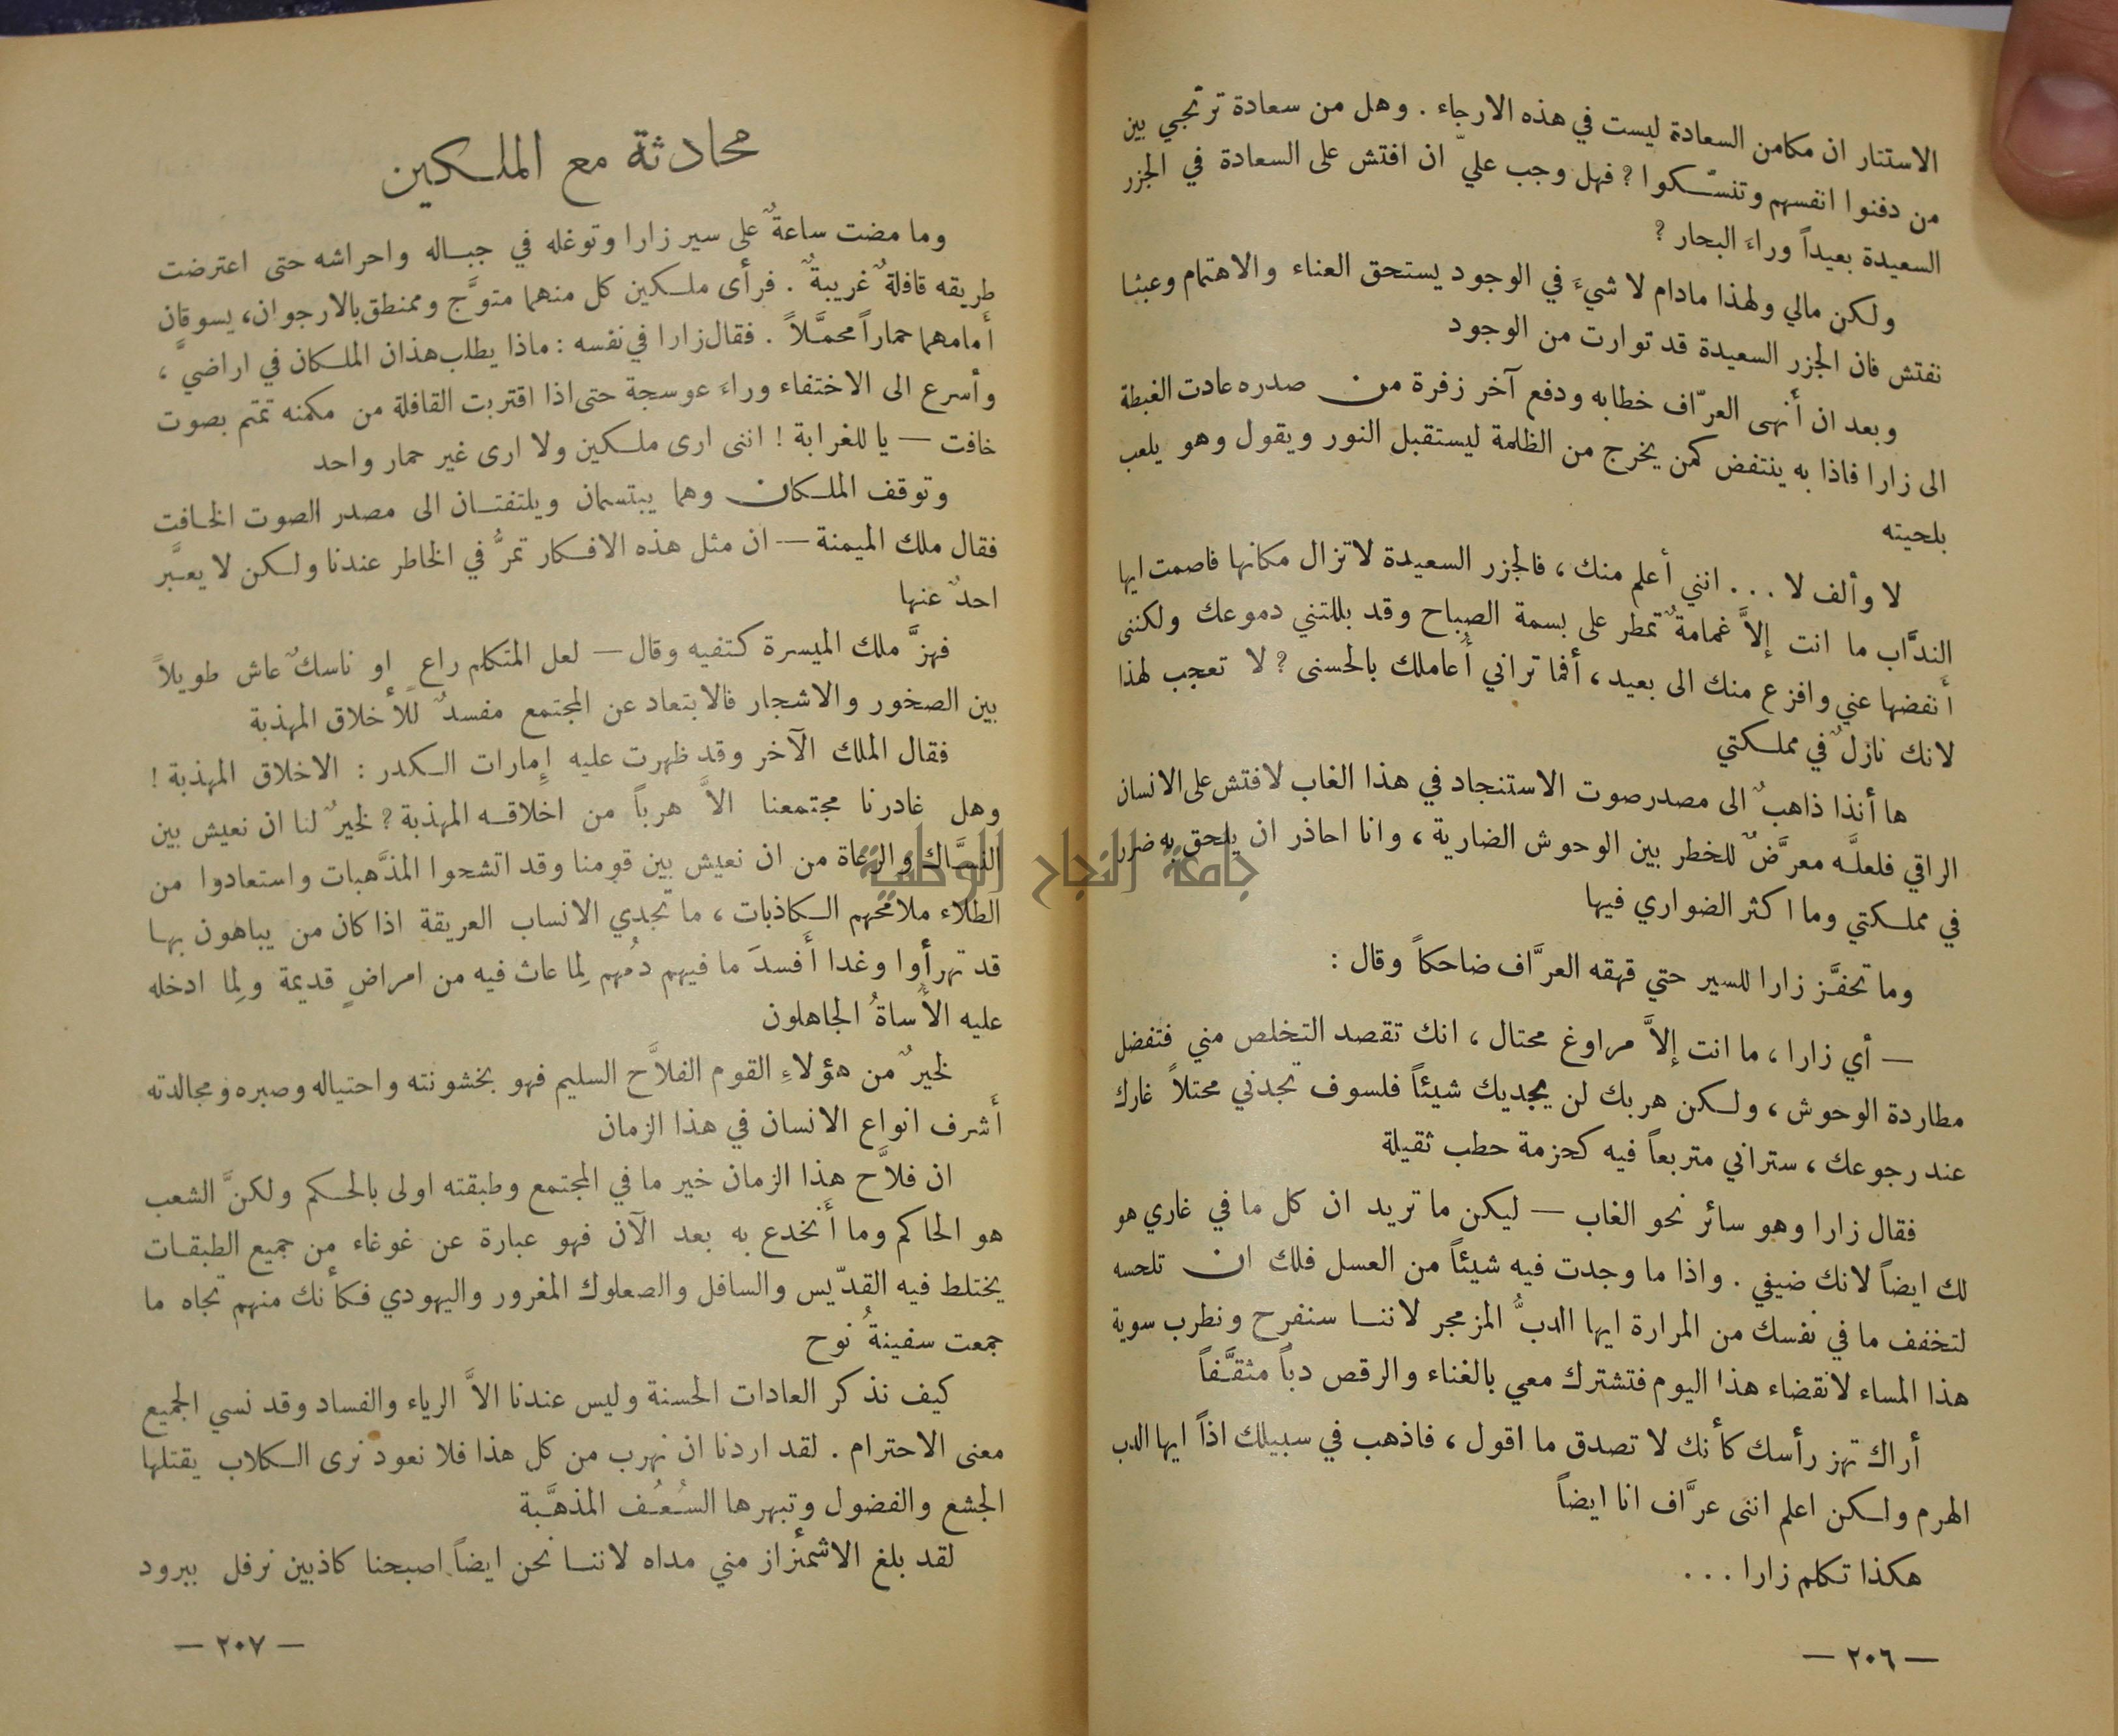 الاستتار ان مكامن السعادة ليست في هذه الارجاء . وهل من سعادة ترتجي بين
من دفنوا انفسهم وتنسّكوا ? فهل وجب عليّ ان افتش على السعادة في الجزر
السعيدة بعيداً وراءَ البحار ?
ولكن مالي ولهذا مادام لا شيءَ في الوجود يستحق العناء والاهتمام وعبثا
نفتش فان الجزر السعيدة قد توارت من الوجود
وبعد ان أنهى العرّاف خطابه ودفع آخر زفرة من صدره عادت الغبطة
الى زارا فاذا به ينتفض كمن يخرج من الظلمة ليستقبل النور ويقول وهو يلعب
بلحيته
لا وألف لا ... انني أعلم منك ، فالجزر السعيدة لا تزال مكانها فاصمت ايها
الندَّاب ما انت إلاَّ غمامةٌ تمطر على بسمة الصباح وقد بللتني دموعك ولكننى
أنفضها عني وافزع منك الى بعيد ، أفما تراني أُعاملك بالحسنى ? لا تعجب لهذا
لانك نازلٌ في مملكتي
ها أنذا ذاهبٌ الى مصدر صوت الاستنجاد في هذا الغاب لافتش على الانسان
الراقي فلعلَّه معرَّضٌ للخطر بين الوحوش الضارية ، وانا احاذر ان يلحق به ضرر
في مملكتي وما اكثر الضواري فيها
وما تحفَّز زارا للسير حتي قهقه العرَّاف ضاحكاً وقال :
— أي زارا ، ما انت إلاَّ مراوغ محتال ، انك تقصد التخلص مني فتفضل
مطاردة الوحوش ، ولكن هربك لن يجديك شيئاً فلسوف تجدني محتلاً غارك
عند رجوعك ، ستراني متربعاً فيه كحزمة حطب ثقيلة
فقال زارا وهو سائر نحو الغاب — ليكن ما تريد ان كل ما في غاري هو
لك ايضاً لانك ضيفي . واذا ما وجدت فيه شيئاً من العسل فلك ان تلحسه
لتخفف ما في نفسك من المرارة ايها الدبُّ المزمجر لاننا سنفرح ونطرب سوية
هذا المساء لانقضاء هذا اليوم فتشترك معي بالغناء والرقص دباً مثقَّفاً
أراك تهز رأسك كأنك لا تصدق ما اقول ، فاذهب في سبيلك اذاً ايها الدب
الهرم ولكن اعلم اننى عرَّاف انا ايضاً
هكذا تكلم زارا ...
— ٢٠٦ —
محادثة مع الملكين
وما مضت ساعةٌ على سير زارا وتوغله في جباله واحراشه حتى اعترضت
طريقه قافلةٌ غريبةٌ . فرأى ملكين كل منهما متوَّج وممنطق بالارجوان ، يسوقان
أمامهما حماراً محمَّلاً . فقال زارا في نفسه : ماذا يطلب هذان الملكان في اراضيَّ ،
وأسرع الى الاختفاء وراءَ عوسجة حتى اذا اقتربت القافلة من مكمنه تمتم بصوت
خافت — يا للغرابة ! اننى ارى ملكين ولا ارى غير حمار واحد
وتوقف الملكان وهما يبتسمان ويلتفتان الى مصدر الصوت الخافت
فقال ملك الميمنة — ان مثل هذه الافكار تمرُّ في الخاطر عندنا ولكن لا يعبَّر
احدٌ عنها
فهزَّ ملك الميسرة كتفيه وقال — لعل المتكلم راعٍ او ناسكٌ عاش طويلاً
بين الصخور والاشجار فالابتعاد عن المجتمع مفسدٌ للأخلاق المهذبة
فقال الملك الآخر وقد ظهرت عليه إِمارات الكدر : الاخلاق المهذبة !
وهل غادرنا مجتمعنا الاَّ هرباً من اخلاقه المهذبة ? لخيرٌ لنا ان نعيش بين
النسَّاك والرعاة من ان نعيش بين قومنا وقد اتشحوا المذَّهبات واستعادوا من
الطلاء ملامحهم الكاذبات ، ما تجدي الانساب العريقة اذا كان من يباهون بها
قد تهرأوا وغدا أَفسدَ ما فيهم دمُهم لِما عاث فيه من امراضٍ قديمة ولِما ادخله
عليه الأُساةُ الجاهلون
لخيرٌ من هؤلاءِ القوم الفلاَّح السليم فهو بخشونته واحتياله وصبره ومجالدته
أَشرف انواع الانسان في هذا الزمان
ان فلاَّح هذا الزمان خير ما في المجتمع وطبقته اولى بالحكم ولكنَّ الشعب
هو الحاكم وما أَنخدع به بعد الآن فهو عبارة عن غوغاء من جميع الطبقات
يختلط فيه القدّيس والسافل والصعلوك المغرور واليهودي فكأنك منهم تجاه ما
جمعت سفينةُ نوح
كيف نذكر العادات الحسنة وليس عندنا الاَّ الرياء والفساد وقد نسي الجميع
معنى الاحترام . لقد اردنا ان نهرب من كل هذا فلا نعود نرى الكلاب يقتلها
الجشع والفضول وتبهرها السُعُف المذهَّبة
لقد بلغ الاشمئزاز مني مداه لاننا نحن ايضاً اصبحنا كاذبين نرفل ببرود
— ٢٠٧ —
جامعة النجاح الوطنية